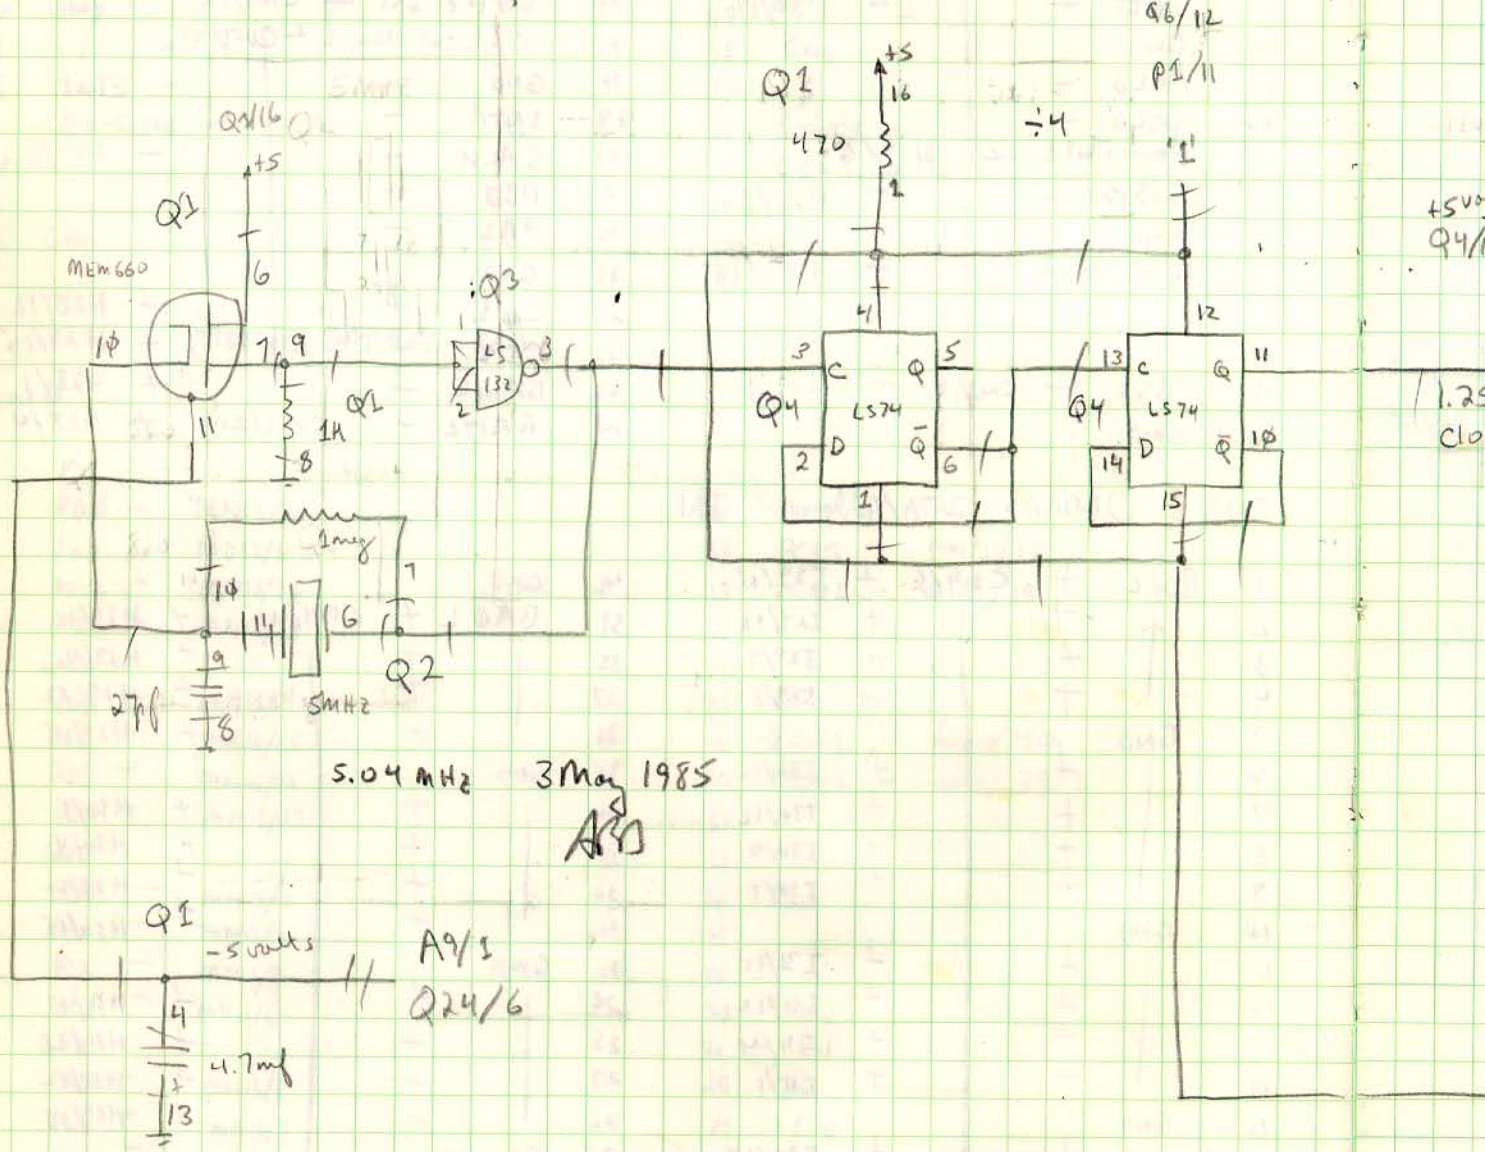 Q6/12
P1/11
Q1
+5
16
470
1
÷4
'1'
+5
Q1
6
MEM660
10
7
9
11
Q1
1K
8
Q3
1
LS
132
2
3
4
3
C
Q
5
Q4
LS74
2
D
Q̅
6
1
12
13
C
Q
11
Q4
LS74
14
D
Q̅
10
15
Q4/1
1.25
Clo
1meg
10
7
14
6
9
Q2
27pf
8
5MHz
5.04 MHz 3 May 1985
Q1
-5 volts
A9/1
Q24/6
4
4.7mf
+
13